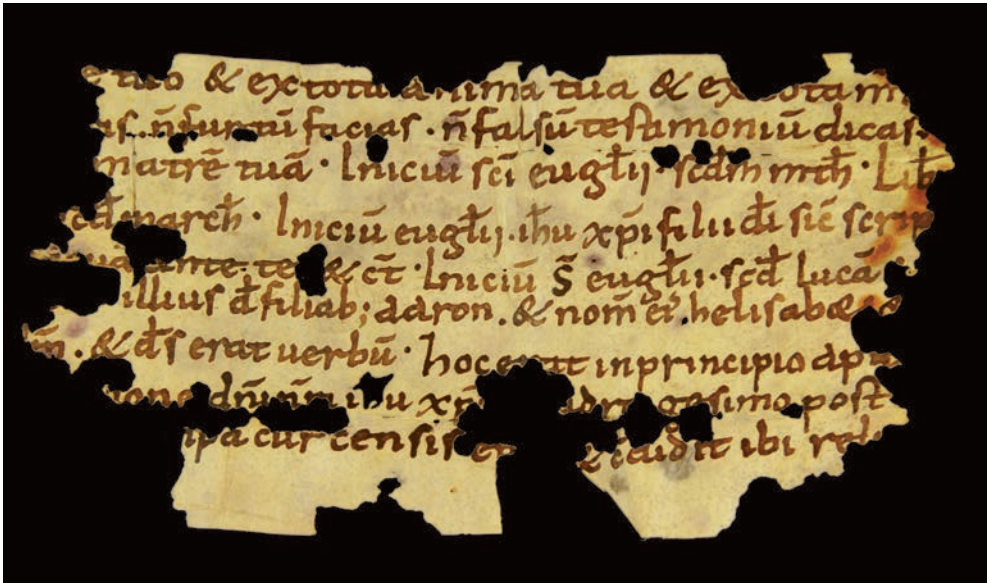 tuo & extota anima tua & ex tota m
is. n̄ furtū facias. n̄ falsū testamoniū dicas.
matrē tuā. Iniciū sc̄i eugl̄ij. scd̄m mth̄. Lib̄
scd̄ march̄. Iniciū eugl̄ij. ih̄u xp̄i filii dī sic̄ scrip
tuā ante te & ct̄. Iniciū s̄ eugl̄ii. scd̄ lucā
illius d̄ filiab; aaron. & nom̄ ei' helisabæ
m̄. & d̄s erat uerbū. hoc erat inprincipio ap
ione dn̄i nr̄i ih̄u xp̄i gesimo post
censis caudit ibi